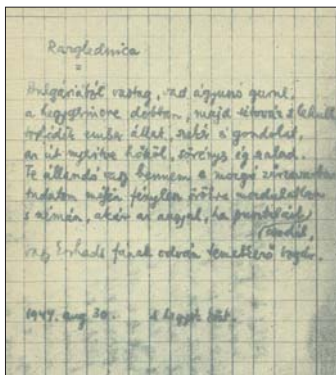 Razglednica
Bulgáriából vastag, vad ágyuszó gurul,
a hegygerincre dobban, majd tétováz s lehull
torlódik ember, állat, szekér és gondolat,
az út nyerítve hőköl, sörényes ég szalad.
Te állandó vagy bennem e mozgó zűrzavarban
tudatom mélyén fénylesz örökre mozdulatlan
s némán, akár az angyal, ha pusztulást
csodál,
vagy korhadt fának odván temetkező bogár.
1944. aug 30. A hegyek közt.